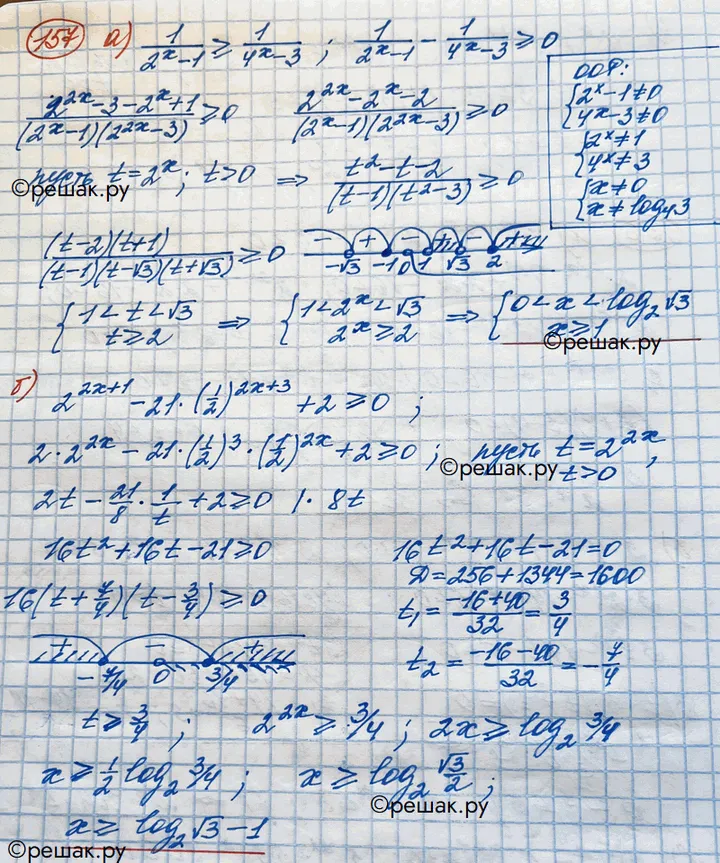 157 а) 1/(2^x-1) ≥ 1/(4^x-3) ; 1/(2^x-1) - 1/(4^x-3) ≥ 0
ООФ:
{2^x-1≠0
{4^x-3≠0
{2^x≠1
{4^x≠3
{x≠0
{x≠log₄3
(2^2x-3-2^x+1)/((2^x-1)(2^2x-3)) ≥ 0 (2^2x-2^x-2)/((2^x-1)(2^2x-3)) ≥ 0
пусть t=2^x; t>0 ⇒ (t²-t-2)/((t-1)(t²-3)) ≥ 0
©решак.ру
(t-2)(t+1)/((t-1)(t-√3)(t+√3)) ≥ 0
- + - + - +
-√3 -1 0 1 √3 2
{1<t<√3 ⇒ {1<2^x<√3 ⇒ {0<x<log₂√3
{t≥2 {2^x≥2 {x≥1
©решак.ру
б) 2^(2x+1) - 21·(1/2)^(2x+3) + 2 ≥ 0 ;
2·2^2x - 21·(1/2)^3·(1/2)^2x + 2 ≥ 0 ; пусть t=2^2x,
t>0
©решак.ру
2t - 21/8 · 1/t + 2 ≥ 0 | · 8t
16t²+16t-21≥0
16(t+7/4)(t-3/4)≥0
16t²+16t-21=0
D=256+1344=1600
t₁ = (-16+40)/32 = 3/4
t₂ = (-16-40)/32 = -7/4
+ - +
-7/4 0 3/4
t≥3/4 ; 2^2x ≥ 3/4 ; 2x ≥ log₂ 3/4
x ≥ 1/2 log₂ 3/4 ; x ≥ log₂ √3/2 ;
©решак.ру
x ≥ log₂√3 - 1
©решак.ру